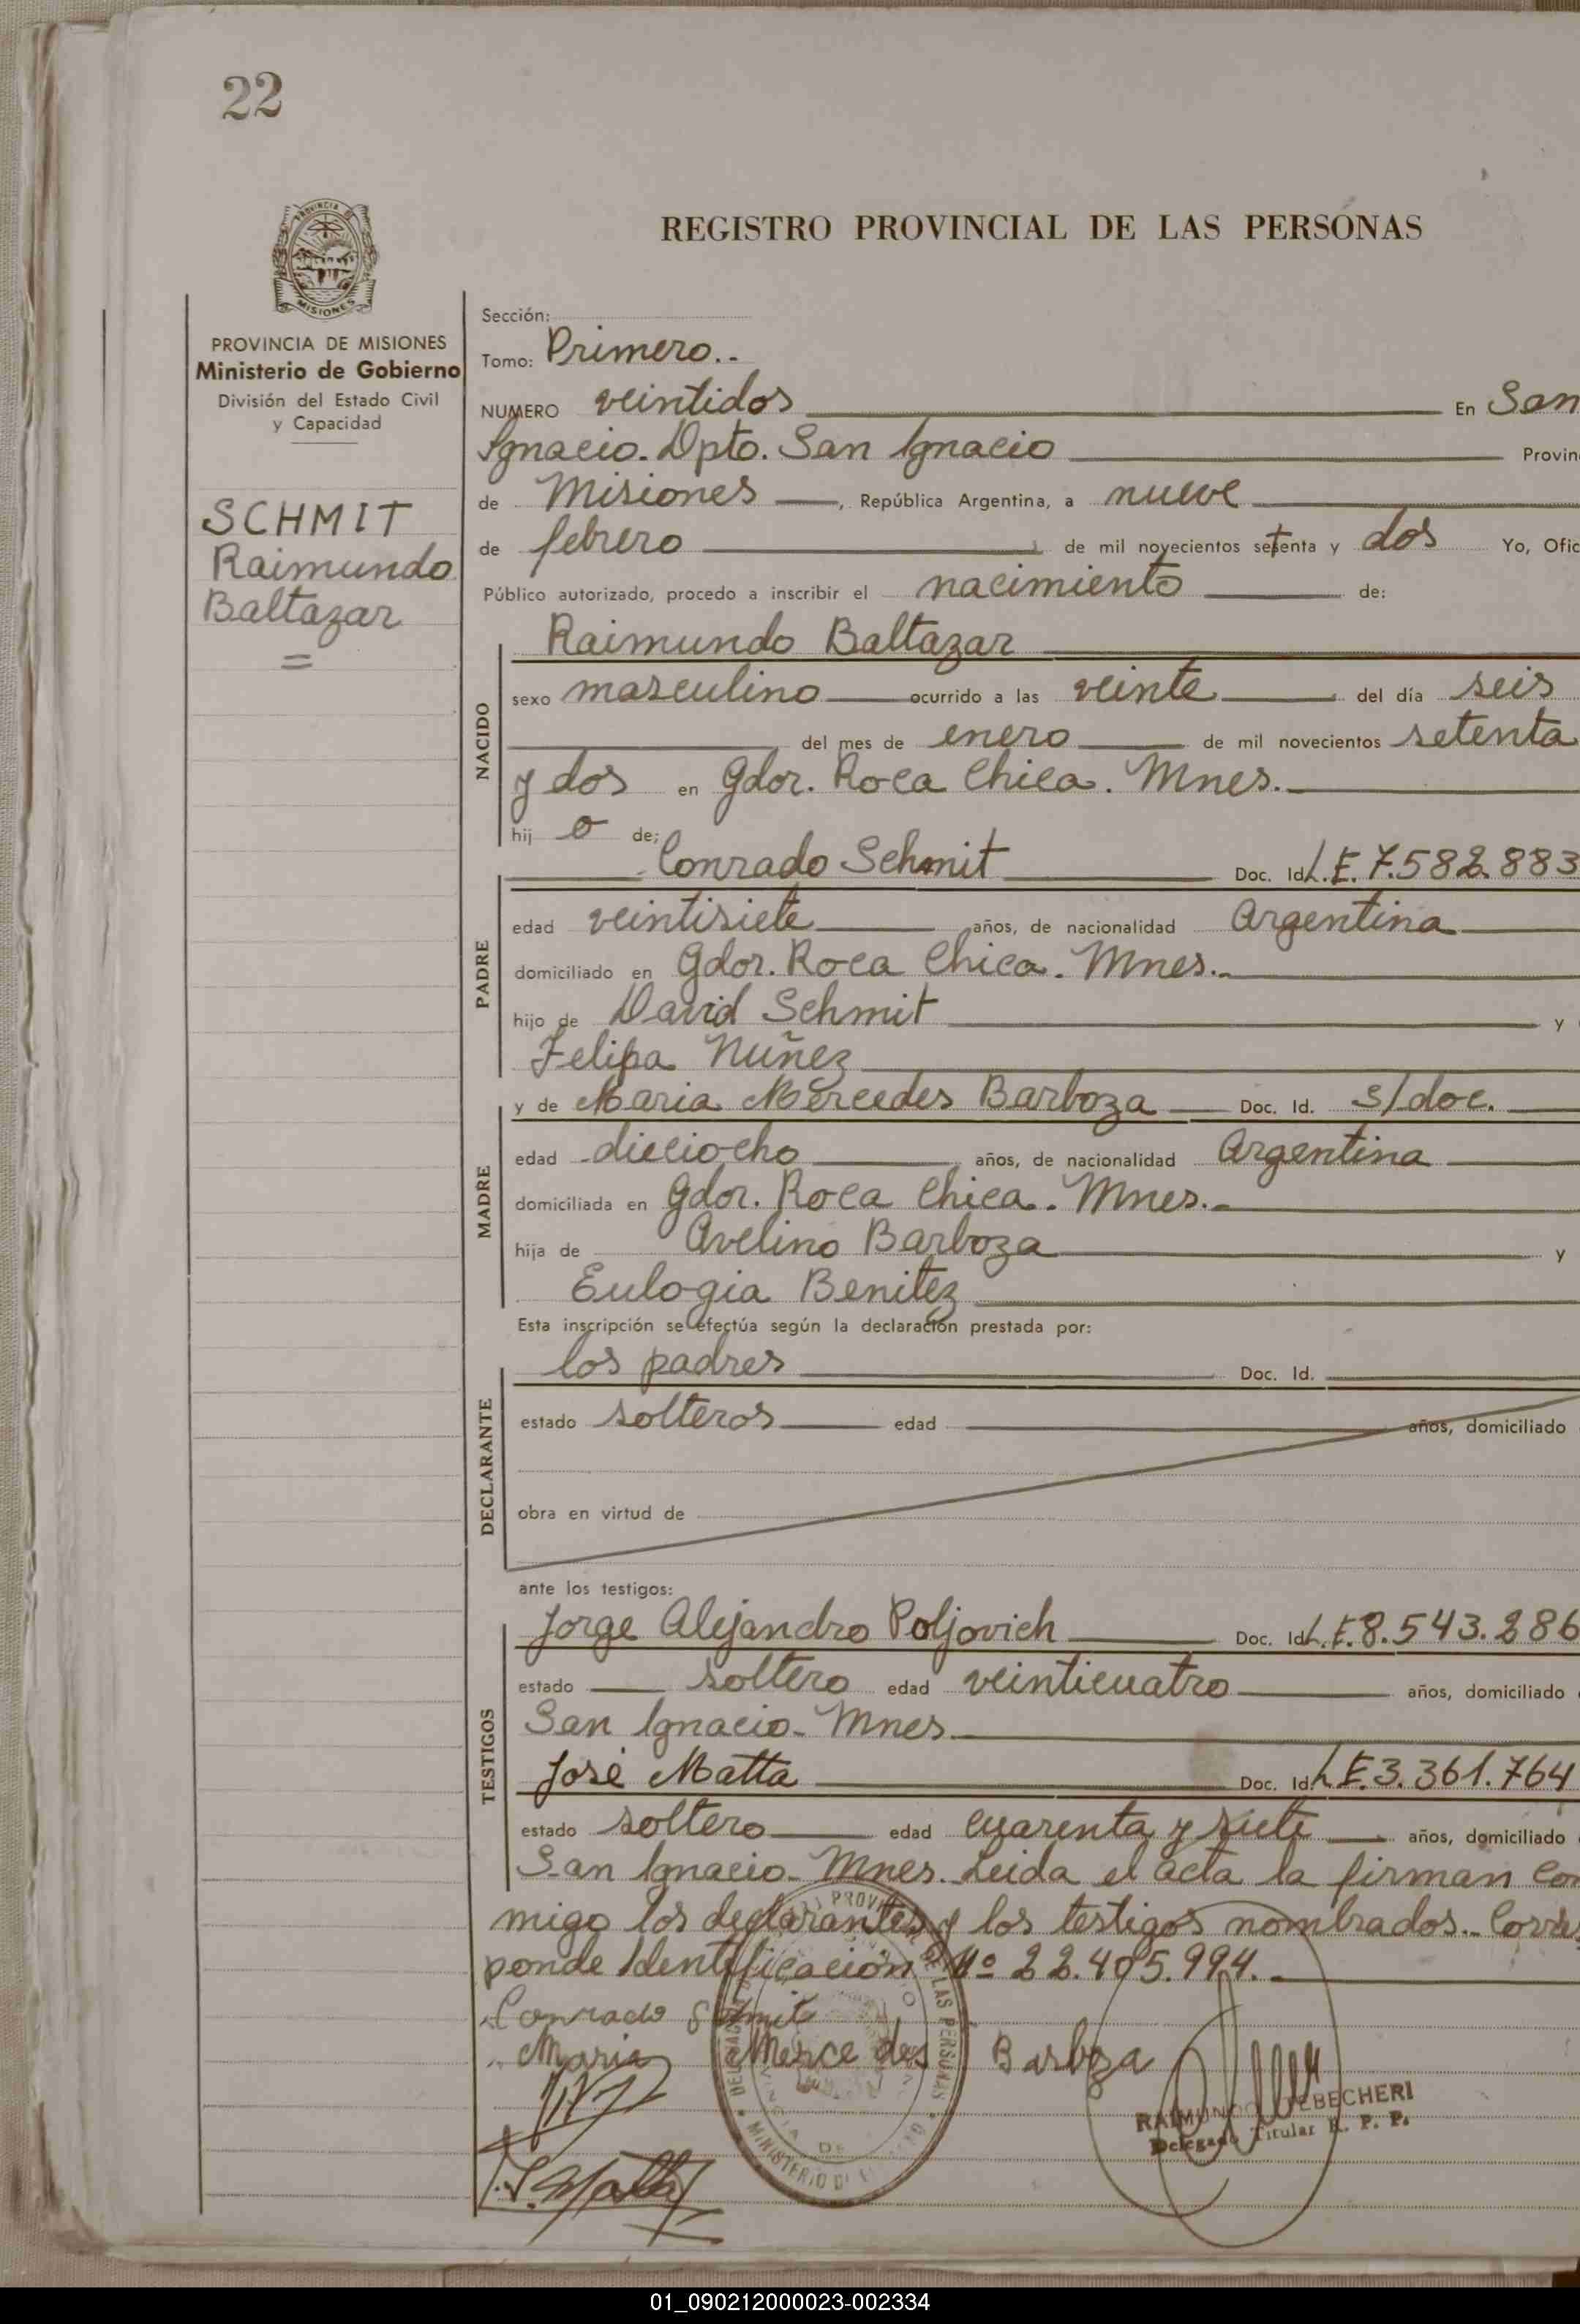 22
REGISTRO PROVINCIAL DE LAS PERSONAS
PROVINCIA DE
MISIONES
PROVINCIA DE MISIONES
Ministerio de Gobierno
División del Estado Civil
y Capacidad
SCHMIT
Raimundo
Baltazar
=
Sección:
Tomo: Primero..
NUMERO veintidos En San
Ignacio. Dpto. San Ignacio Provin
de Misiones, República Argentina, a nueve
de febrero de mil novecientos setenta y dos Yo, Ofic
Público autorizado, procedo a inscribir el nacimiento de:
NACIDO
Raimundo Baltazar
sexo masculino ocurrido a las veinte del día seis
del mes de enero de mil novecientos setenta
y dos en Gdor. Roca Chica. Mnes.
hij o de:
PADRE
Conrado Schmit Doc. Id. L.E. 7.582.883
edad veintisiete años, de nacionalidad Argentina
domiciliado en Gdor. Roca Chica. Mnes.
hijo de David Schmit y
Felipa Nuñez
MADRE
y de Maria Mercedes Barboza Doc. Id. s/doc.
edad dieciocho años, de nacionalidad Argentina
domiciliada en Gdor. Roca Chica. Mnes.
hija de Avelino Barboza y
Eulogia Benitez
Esta inscripción se efectúa según la declaración prestada por:
DECLARANTE
los padres Doc. Id.
estado solteros edad años, domiciliado
obra en virtud de
ante los testigos:
TESTIGOS
Jorge Alejandro Poljovich Doc. Id. L.E. 8.543.286
estado soltero edad veinticuatro años, domiciliado
San Ignacio - Mnes.
José Matta Doc. Id. L.E. 3.361.764
estado soltero edad cuarenta y siete años, domiciliado
San Ignacio - Mnes. Leida el acta la firman con
migo los declarantes y los testigos nombrados.. Corres
ponde Identificación Nº 22.405.994.
Conrado Schmit
Maria Mercedes Barboza
RAIMUNDO
Delegado Titular R. P. P.
DE LAS PERSONAS
MINISTERIO DE
J. Matta
01_090212000023-002334